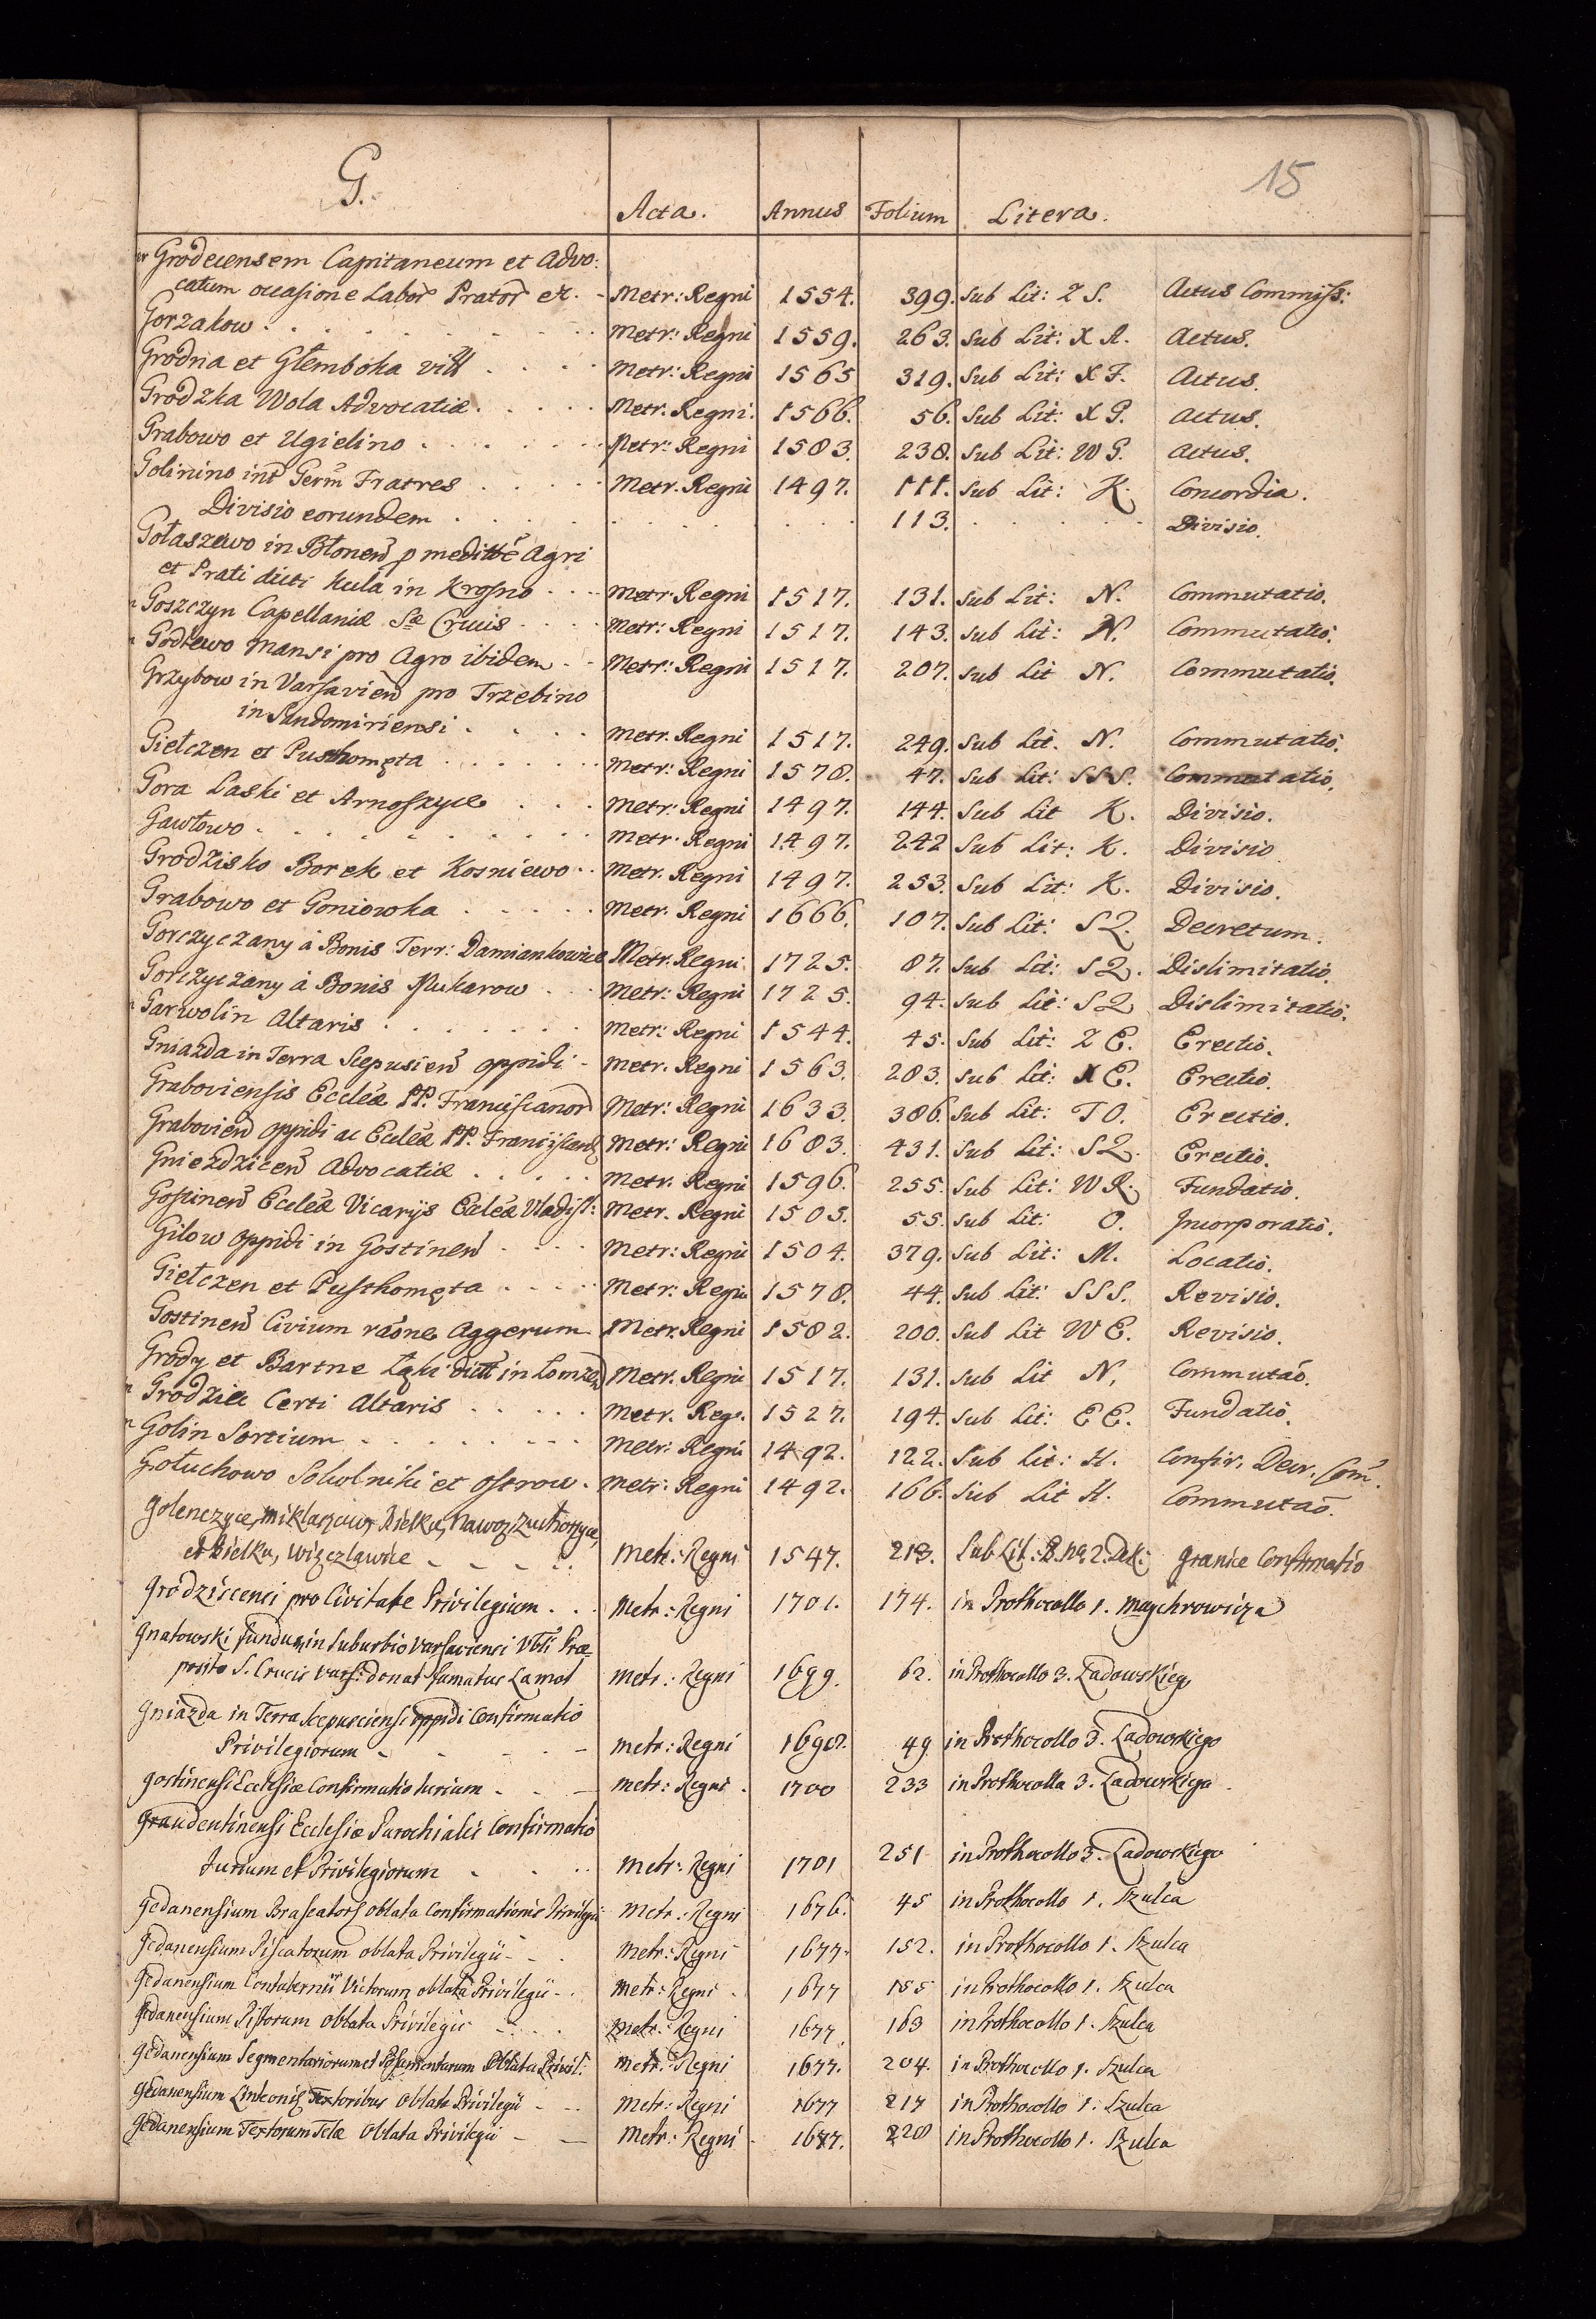 15
G. Acta. Annus Folium Litera.
Grodecensem Capitaneum et Advo:
catum occasione Labor Prator etc. - Metr: Regni 1554. 399. Sub Lit: Z S. Actus Commiss:
Gorzakow . . . . Metr: Regni 1559. 263. Sub Lit: X A. Actus.
Grodna et Głemboka vill . . . . Metr: Regni 1565 319. Sub Lit: X F. Actus.
Grodzka Wola Advocatiæ . . . . Metr. Regni. 1566. 56. Sub Lit: X G. Actus.
Grabowo et Ugielino . . . . Metr: Regni 1583. 238. Sub Lit: W G. Actus.
Golinino int Germ Fratres . . . . Metr. Regni 1497. 111. Sub Lit: K. Concordia.
Divisio eorundem . . . . 113. . . . . Divisio.
Gołaszewo in Błonen p medite Agri
et Prati dicti Kula in Krosno . . . Metr. Regni 1517. 131. Sub Lit: N. Commutatio.
Goszczyn Capellaniæ Sæ Crucis . . . . Metr: Regni 1517. 143. Sub Lit: N. Commutatio.
Godłewo Mansi pro Agro ibidem - - Metr: Regni 1517. 207. Sub Lit N. Commutatio.
Grzybow in Varsavien pro Trzebino
in Sandomiriensi . . . . Metr. Regni 1517. 249. Sub Lit. N. Commutatio.
Giełczen et Pusthomęta . . . . Metr: Regni 1578. 47. Sub Lit: SSS. Commutatio.
Gora Laski et Arnoszyce . . . Metr: Regni 1497. 144. Sub Lit K. Divisio.
Gawłowo . . . . Metr. Regni 1497. 242 Sub Lit: K. Divisio
Grodzisko Borek et Kosniewo . . Metr. Regni 1497. 253. Sub Lit: K. Divisio.
Grabowo et Goniowka . . . . Metr. Regni 1666. 107. Sub Lit: S Z. Decretum.
Gorczyczany à Bonis Terr: Damiankowice Metr. Regni. 1725. 87. Sub Lit: S Z. Dislimitatio.
Gorczyczany à Bonis Rukarow . . . Metr: Regni 1725. 94. Sub Lit: S Z Dislimitatio.
Garwolin Altaris . . . . Metr: Regni 1544. 45. Sub Lit: Z E. Erectio.
Gniazda in Terra Scepusien oppidi - Metr. Regni 1563. 283. Sub Lit: X E. Erectio.
Graboviensis Eccleæ PP. Franciscanor Metr: Regni 1633. 386. Sub Lit: T O. Erectio.
Grabovien oppidi ac Eccleæ PP. Franciscan Metr: Regni 1683. 431. Sub Lit: S Z. Erectio.
Gniezdzicen Advocatiæ . . . . Metr. Regni 1596. 255. Sub Lit: W R. Fundatio.
Gostinen Eccleæ Vicarijs Ecleæ Vladisl: Metr. Regni 1505. 55. Sub Lit: O. Incorporatio.
Gilow oppidi in Gostinen . . . . Metr: Regni 1504. 379. Sub Lit: M. Locatio.
Giełczen et Pusthomęta . . . . Metr: Regni 1578. 44. Sub Lit: SSS. Revisio.
Gostinen Civium raõne Aggerum. Metr. Regni 1582. 200. Sub Lit W E. Revisio.
Grody et Bartne Łąki dict in Lomzen Metr. Regni 1517. 131. Sub Lit N. Commutaõ.
Grodziec Certi Altaris . . . . Metr. Reg. 1527. 194. Sub Lit: E E. Fundatio.
Golin Sortium . . . . Metr: Regni 1492. 122. Sub Lit: H. Confir. Decr. Com.
Gołuchowo Sokolniki et Ostrow . Metr: Regni 1492. 166. Sub Lit H. Commutaõ.
Golenczyce, Miklaszow, Bielka, Nawoz, Zuchorzyce,
et Bielka, Wizezlawice - - - Metr: Regni 1547. 213. Granice Confirmatio
Grodziscensi pro Civitate Privilegium . . . Metr: Regni 1701. 174. in Prothocollo 1. Maychrowicza
Gnatowski Fundum in Suburbio Varsaviensi Præ-
posito S. Crucis Vars: donat Famatus Lamot Metr: Regni 1699. 62. in Prothocollo 3. Ladowskieg
Gniazda in Terra Scepusciensi oppidi Confirmatio
Privilegiorum - - - Metr: Regni 1698. 49 in Prothocollo 3. Ladowskiego
Gostinensi Ecclesiæ Confirmatio Iurium - - - Metr: Regni . 1700 233 in Prothocolla 3. Ladowskiego
Graudentinensi Ecclesiæ Parochiali Confirmatio
Iurium et Privilegiorum - - Metr: Regni 1701 251 in Prothocollo 3. Ladowskiego
Gedanensium Braseators oblata Confirmationis Privilegii Metr: Regni 1676. 45 in Prothocollo 1. Szulca
Gedanensium Piscatorum oblata Privilegii - - Metr: Regni 1677. 152. in Prothocollo 1. Szulca
Gedanensium Contubernii Victorum oblata Privilegii - . Metr: Regni . 1677 155 in Prothocollo 1. Szulca
Gedanensium Pistorum oblata Privilegii - - - Metr: Regni 1677. 163 in Prothocollo 1. Szulca
Gedanensium Segmentariorum et Passamentarum Oblata Privil: Metr: Regni 1677. 204. in Prothocollo 1. Szulca
Gedanensium Linteoniz Textoribus Oblate Privilegii - - - Metr: Regni 1677 217 in Prothocollo 1. Szulca
Gedanensium Textorum Telæ Oblata Privilegii - - Metr: Regni - 1677. 220 in Prothocollo 1. Szulca